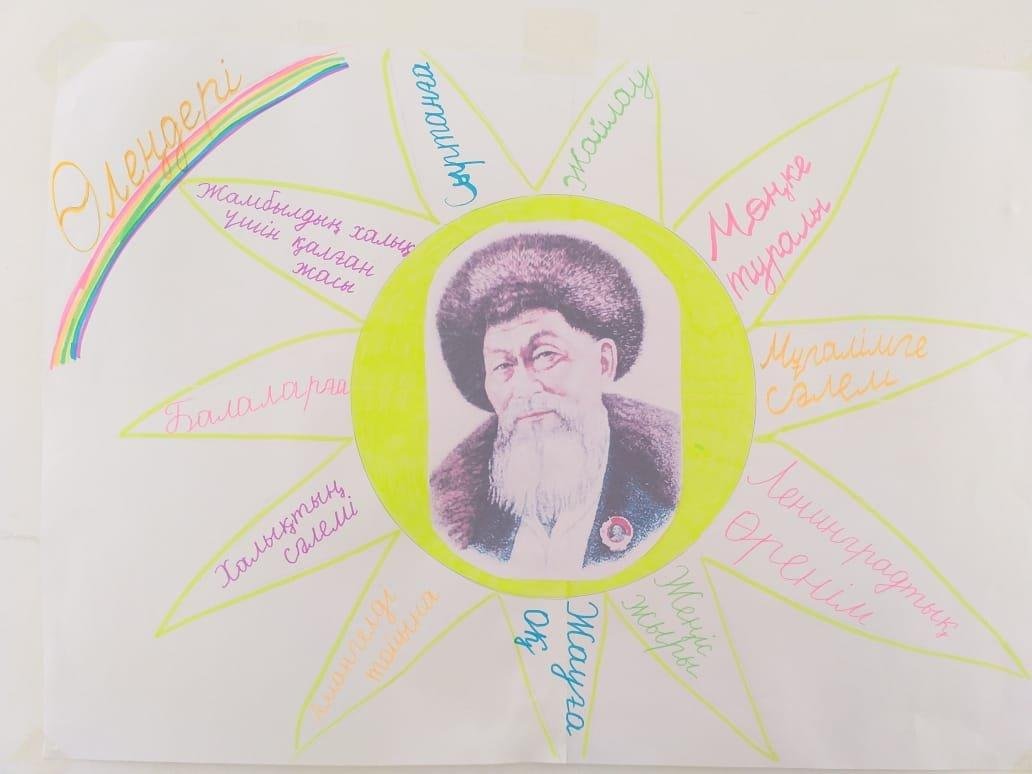 Өлеңдері
Сыртанға
Жайлау
Мөңке
туралы
Мұғалімге
сәлем
Ленинградтық
Өренім
Жеңіс
жыры
Жауға
Оқ
Амангелді
тайпка
Халықтың
сәлемі
Балаларға
Жамбылдың халық
үшін қалған
жасы